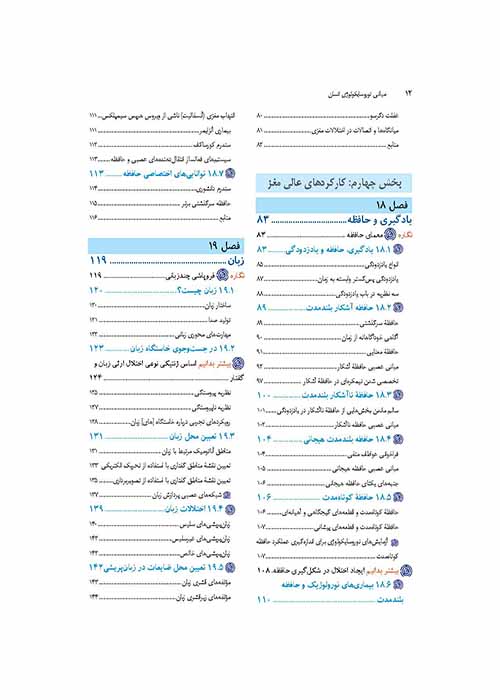 ۱۲ مبانی نوروسایکولوژی انسان
غفلت دگرسو ۸۰
میانگاه‌ها و اتصالات در اختلالات مغزی ۸۱
منابع ۸۲
بخش چهارم: کارکردهای عالی مغز
فصل ۱۸
یادگیری و حافظه ۸۳
نگاره معمای حافظه ۸۳
۱۸.۱ یادگیری، حافظه و یادزدودگی ۸۳
انواع یادزدودگی ۸۵
یادزدودگی پس‌گستر وابسته به زمان ۸۷
سه نظریه در باب یادزدودگی ۸۸
۱۸.۲ حافظه آشکار بلندمدت ۸۹
حافظهٔ سرگذشتی ۸۹
آگاهی خودآگاهانه از زمان ۹۰
حافظهٔ معنایی ۹۱
مبانی عصبی حافظهٔ آشکار ۹۲
تخصصی شدن نیمکره‌ای در حافظهٔ آشکار ۹۷
۱۸.۳ حافظهٔ ناآشکار بلندمدت ۱۰۰
سالم ماندن بخش‌هایی از حافظهٔ ناآشکار در یادزدودگی ۱۰۱
مبانی عصبی حافظه ناآشکار ۱۰۲
۱۸.۴ حافظهٔ بلندمدت هیجانی ۱۰۴
فراخوانی عواطف منفی ۱۰۴
مبانی عصبی حافظه هیجانی ۱۰۵
جنبه‌های یکتای حافظه هیجانی ۱۰۶
۱۸.۵ حافظهٔ کوتاه‌مدت ۱۰۶
حافظهٔ کوتاه‌مدت و قطعه‌های گیجگاهی و آهیانه‌ای ۱۰۶
حافظهٔ کوتاه‌مدت و قطعه‌های پیشانی ۱۰۷
آزمایش‌های نوروسایکولوژی برای اندازه‌گیری عملکرد حافظه
کوتاه‌مدت ۱۰۷
بیشتر بدانیم ایجاد اختلال در شکل‌گیری حافظه ۱۰۸
۱۸.۶ بیماری‌های نورولوژیک و حافظه
بلندمدت ۱۱۰
التهاب مغزی (آنسفالیت) ناشی از ویروس هرپس سیمپلکس ۱۱۱
بیماری آلزایمر ۱۱۱
سندرم کورساکف ۱۱۲
سیستم‌های فعال‌ساز انتقال‌دهنده‌های عصبی و حافظه ۱۱۳
۱۸.۷ توانایی‌های اختصاصی حافظه ۱۱۳
سندرم دانشوری ۱۱۴
حافظه سرگذشتی برتر ۱۱۵
منابع ۱۱۶
فصل ۱۹
زبان ۱۱۹
نگاره فروپاشی چندزبانی ۱۱۹
۱۹.۱ زبان چیست؟ ۱۲۰
ساختار زبان ۱۲۰
تولید صدا ۱۲۱
مهارت‌های محوری زبانی ۱۲۲
۱۹.۲ در جست‌وجوی خاستگاه زبان ۱۲۳
بیشتر بدانیم اساس ژنتیکی نوعی اختلال ارثی زبان و
گفتار ۱۲۴
نظریه پیوستگی ۱۲۵
نظریه ناپیوستگی ۱۲۷
رویکردهای تجربی درباره خاستگاه [های] زبان ۱۲۸
۱۹.۳ تعیین محل زبان ۱۳۱
مناطق آناتومیک مرتبط با زبان ۱۳۱
تعیین نقشهٔ مناطق گفتاری با استفاده از تحریک الکتریکی ۱۳۳
تعیین نقشهٔ مناطق گفتاری با استفاده از تصویربرداری ۱۳۵
شبکه‌های عصبی پردازش زبان ۱۳۷
۱۹.۴ اختلالات زبان ۱۳۹
زبان‌پریشی‌های سلیس ۱۴۰
زبان‌پریشی‌های غیرسلیس ۱۴۲
زبان‌پریشی‌های خالص ۱۴۲
۱۹.۵ تعیین محل ضایعات در زبان‌پریشی ۱۴۲
مؤلفه‌های قشری زبان ۱۴۳
مؤلفه‌های زیرقشری زبان ۱۴۴